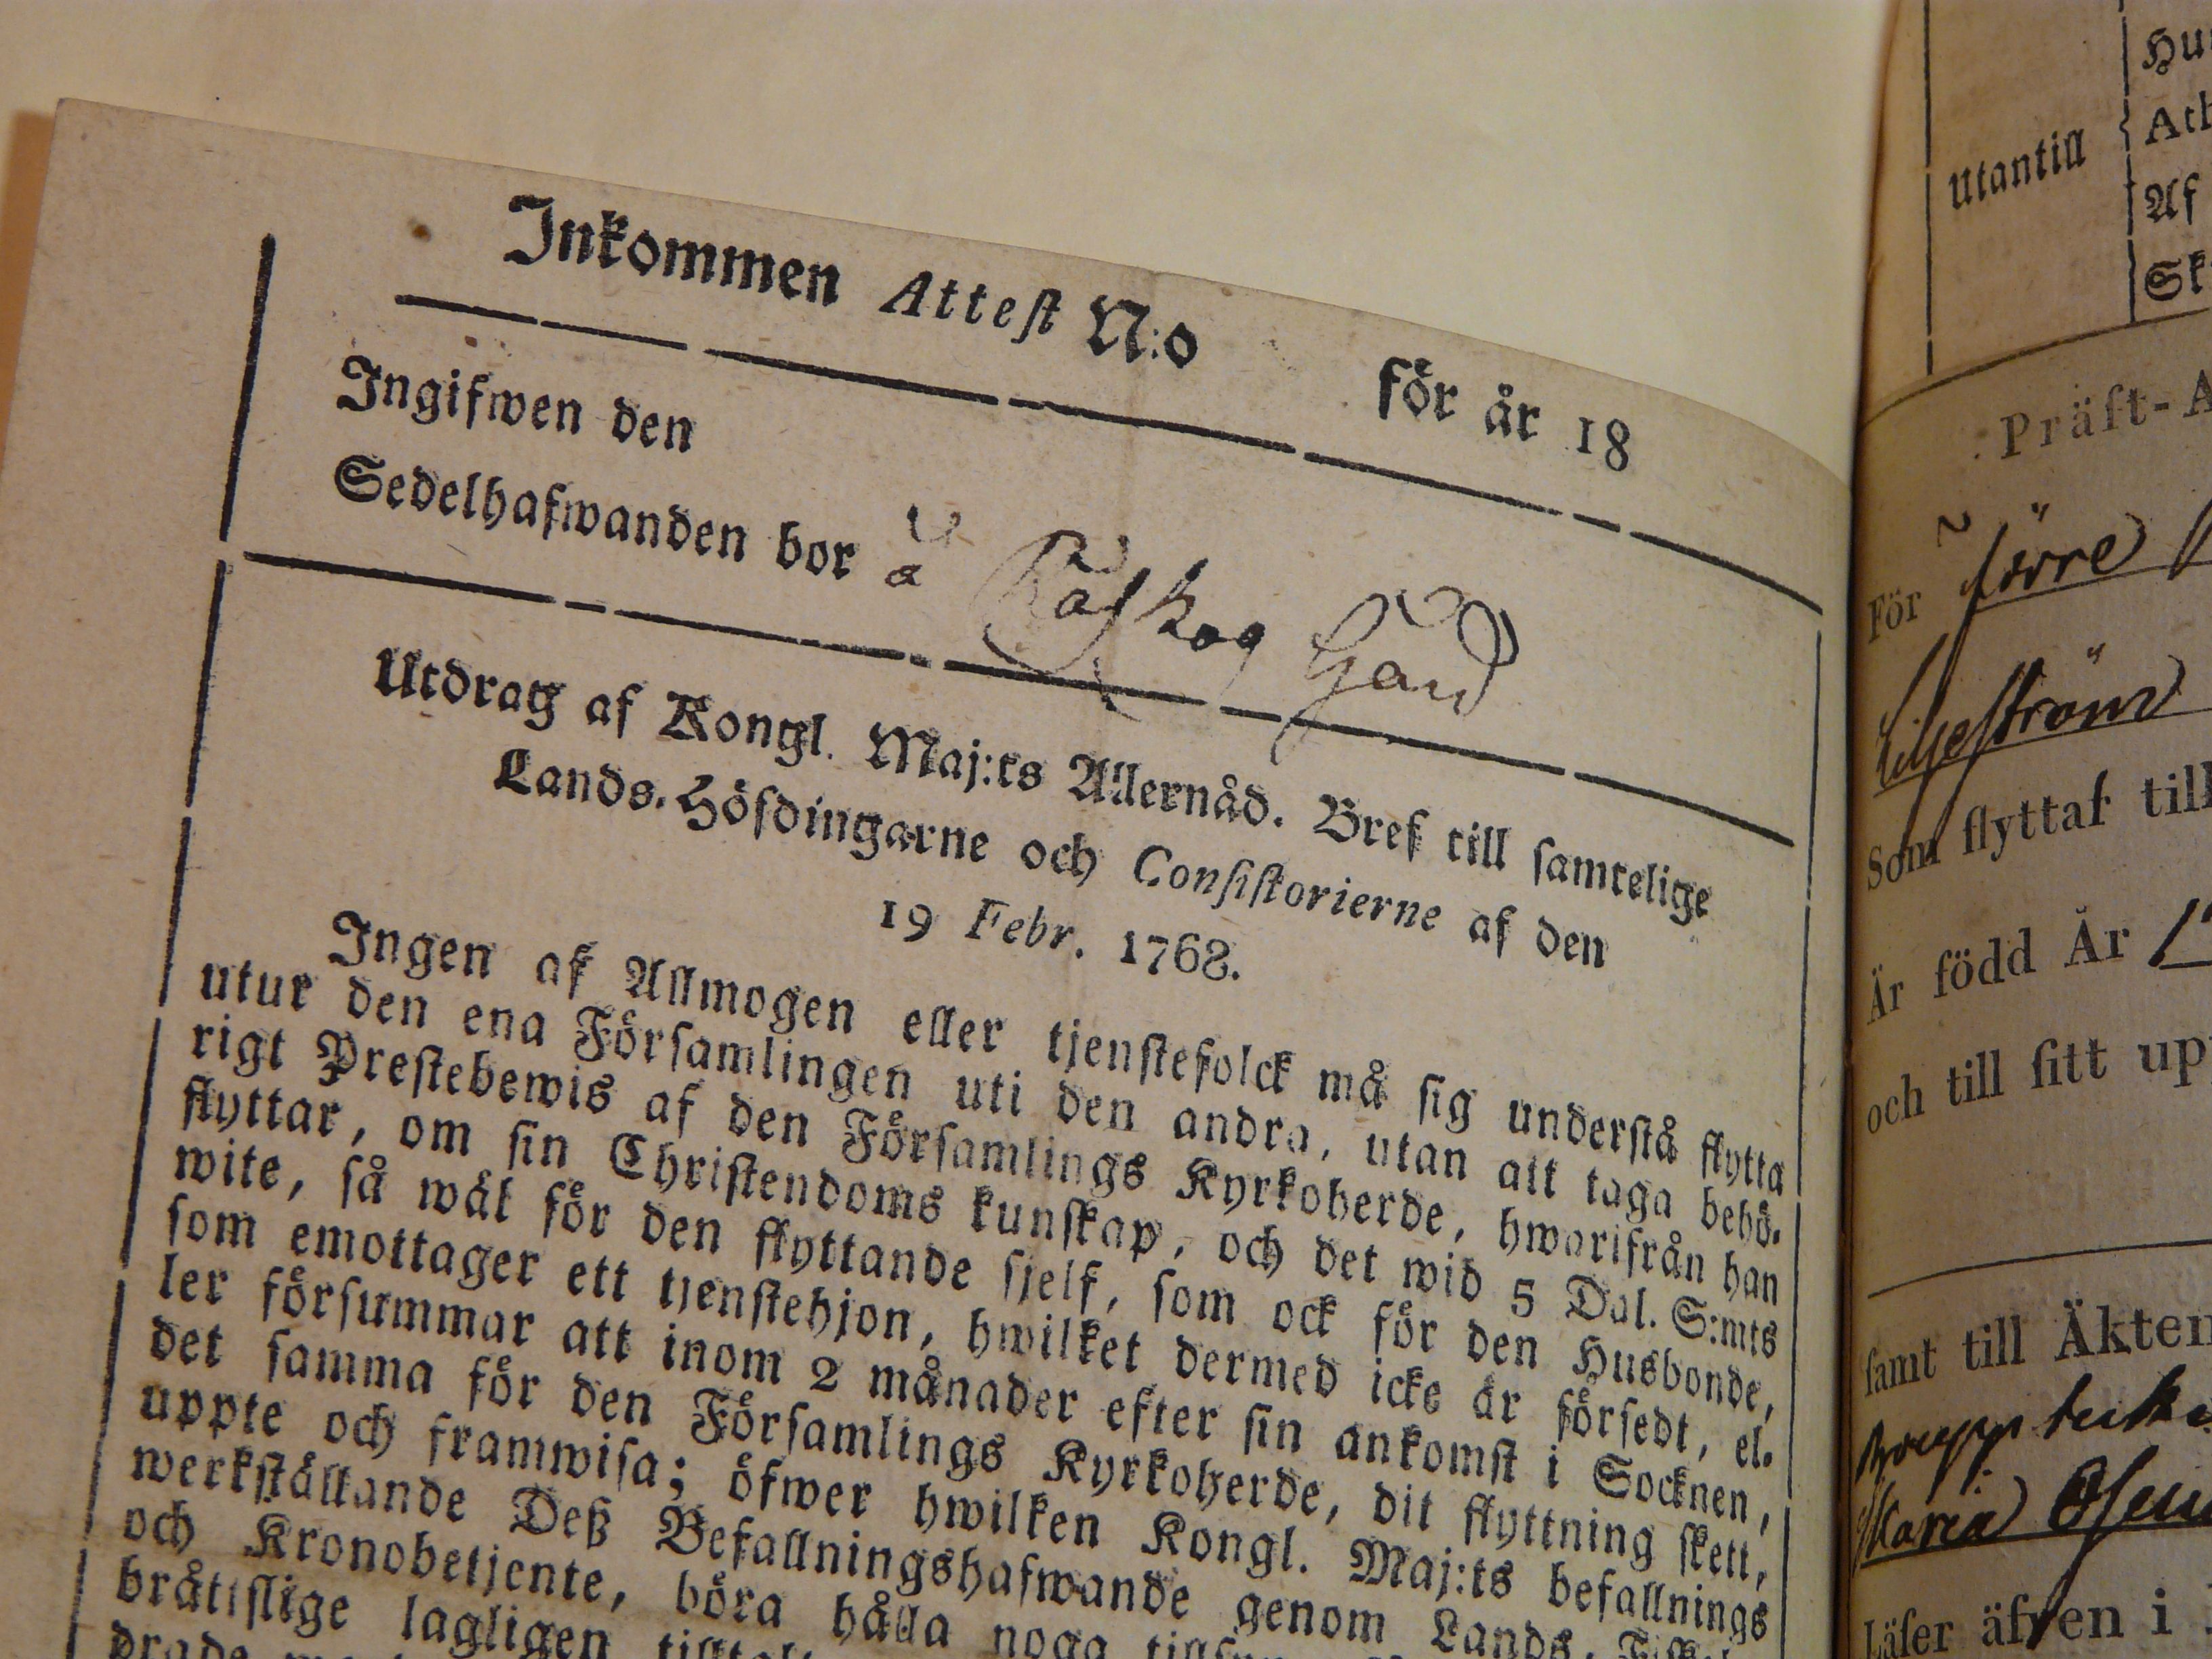 Inkommen Attest N:o för år 18
Ingifwen den
Sedelhafwanden bor å Råskog Gård
Utdrag af Kongl. Maj:ts Allernåd. Bref till samtelige
Lands-Höfdingarne och Consistorierne af den
19 Febr. 1768.
Ingen af Allmogen eller tjenstefolck må sig understå flytta
utur den ena Församlingen uti den andra, utan att taga behö-
rigt Prestebewis af den Församlings Kyrkoherde, hwarifrån han
flyttar, om sin Christendoms kunskap, och det wid 5 Dal. S:mts
wite, så wäl för den flyttande sjelf, som ock för den Husbonde,
som emottager ett tjenstehjon, hwilket dermed icke är försedt, el-
ler försummar att inom 2 månader efter sin ankomst i Socknen,
det samma för den Församlings Kyrkoherde, dit flyttning skett,
uppte och framwisa; öfwer hwilken Kongl. Maj:ts befallnings
werkställande Deß Befallningshafwande genom Lands-
och Kronobetjente, böra hålla noga
bråttslige lagligen
Hu
Utantill
Af
Sk
Präst-A
För
Som flyttat till
Är född År 17
och till sitt up
samt till Äkten
Maria
Läser äfven i